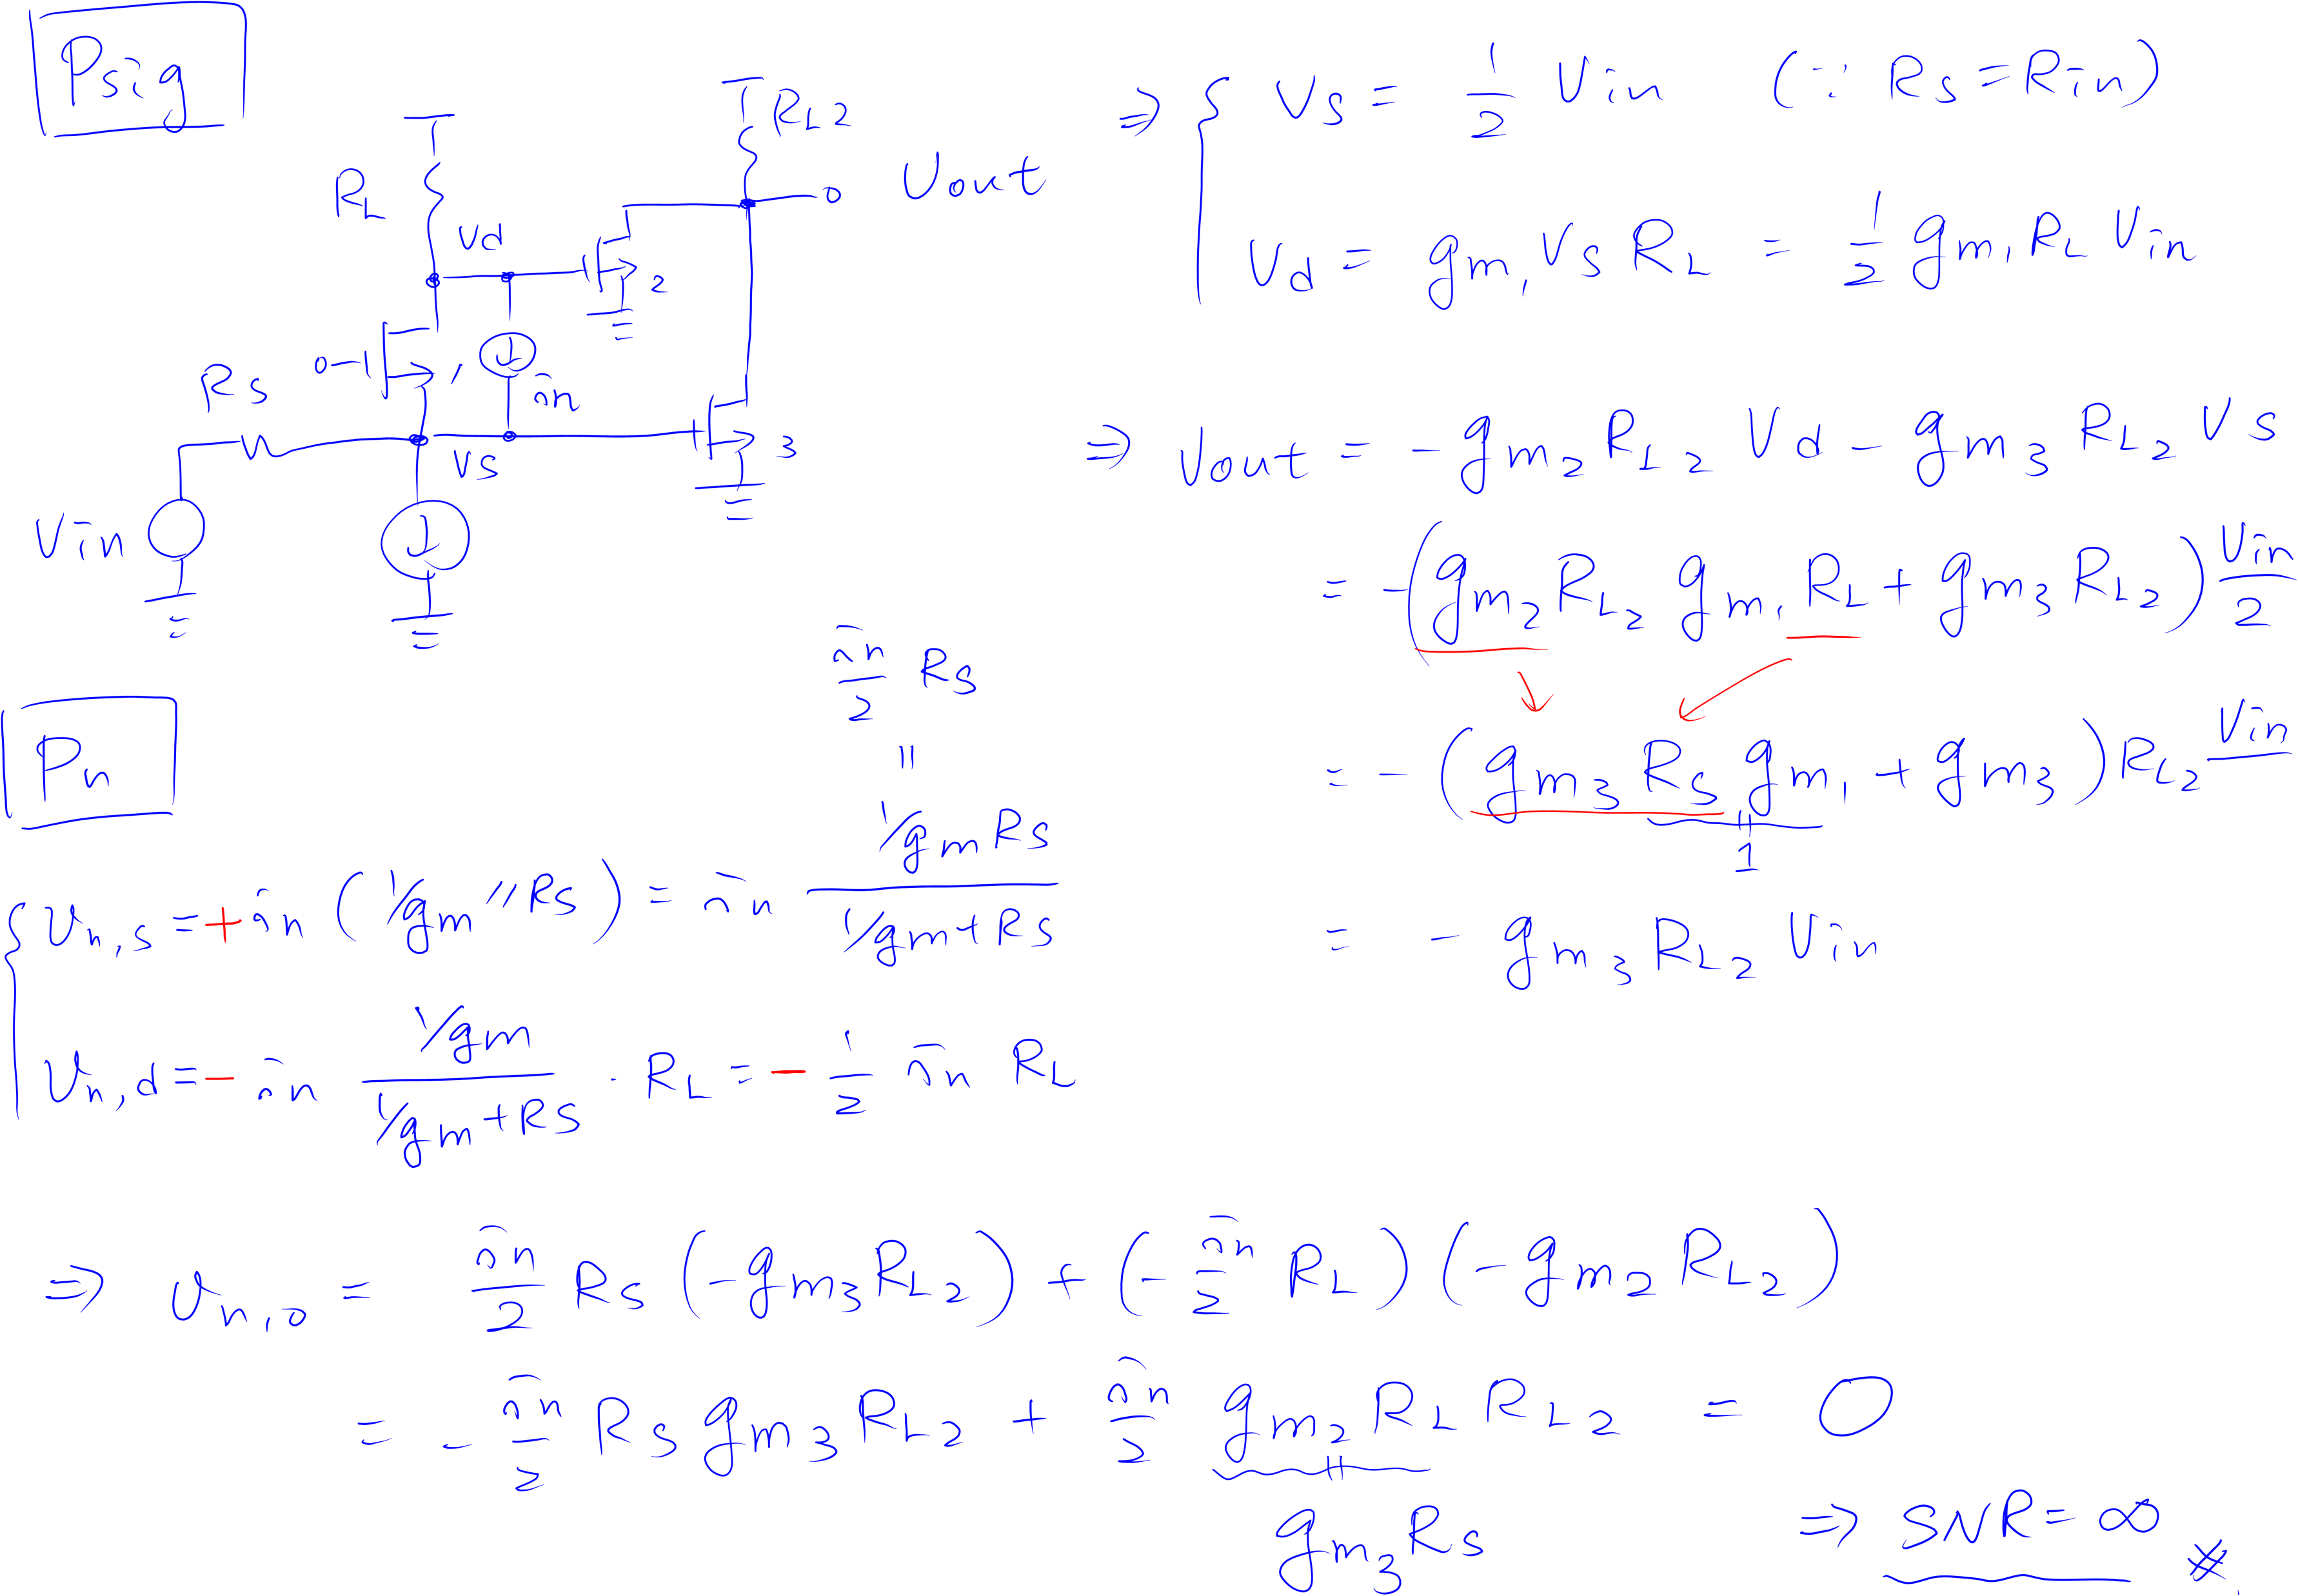 Psig
RL2
RL
Vout
Vd
2
1
Rs
in
Vs
3
Vin
⇒ { Vs = 1/2 Vin (∵ Rs = Rin)
Vd = gm1 Vs RL = 1/2 gm1 RL Vin
⇒ Vout = - gm2 RL2 Vd - gm3 RL2 Vs
= -(gm2 RL2 gm1 RL + gm3 RL2) Vin/2
= -(gm3 Rs gm1 + gm3) RL2 Vin
1
= - gm3 RL2 Vin
Pn
in/2 Rs
=
{ Vn,s = + in (1/gm // Rs) = in (1/gm Rs)/(1/gm + Rs)
Vn,d = - in (1/gm)/(1/gm + Rs) · RL = - 1/2 in RL
⇒ Vn,o = in/2 Rs (-gm3 RL2) + (- in/2 RL) (-gm2 RL2)
= - in/2 Rs gm3 RL2 + in/2 gm2 RL RL2 = 0
gm3 Rs
⇒ SNR = ∞ ※